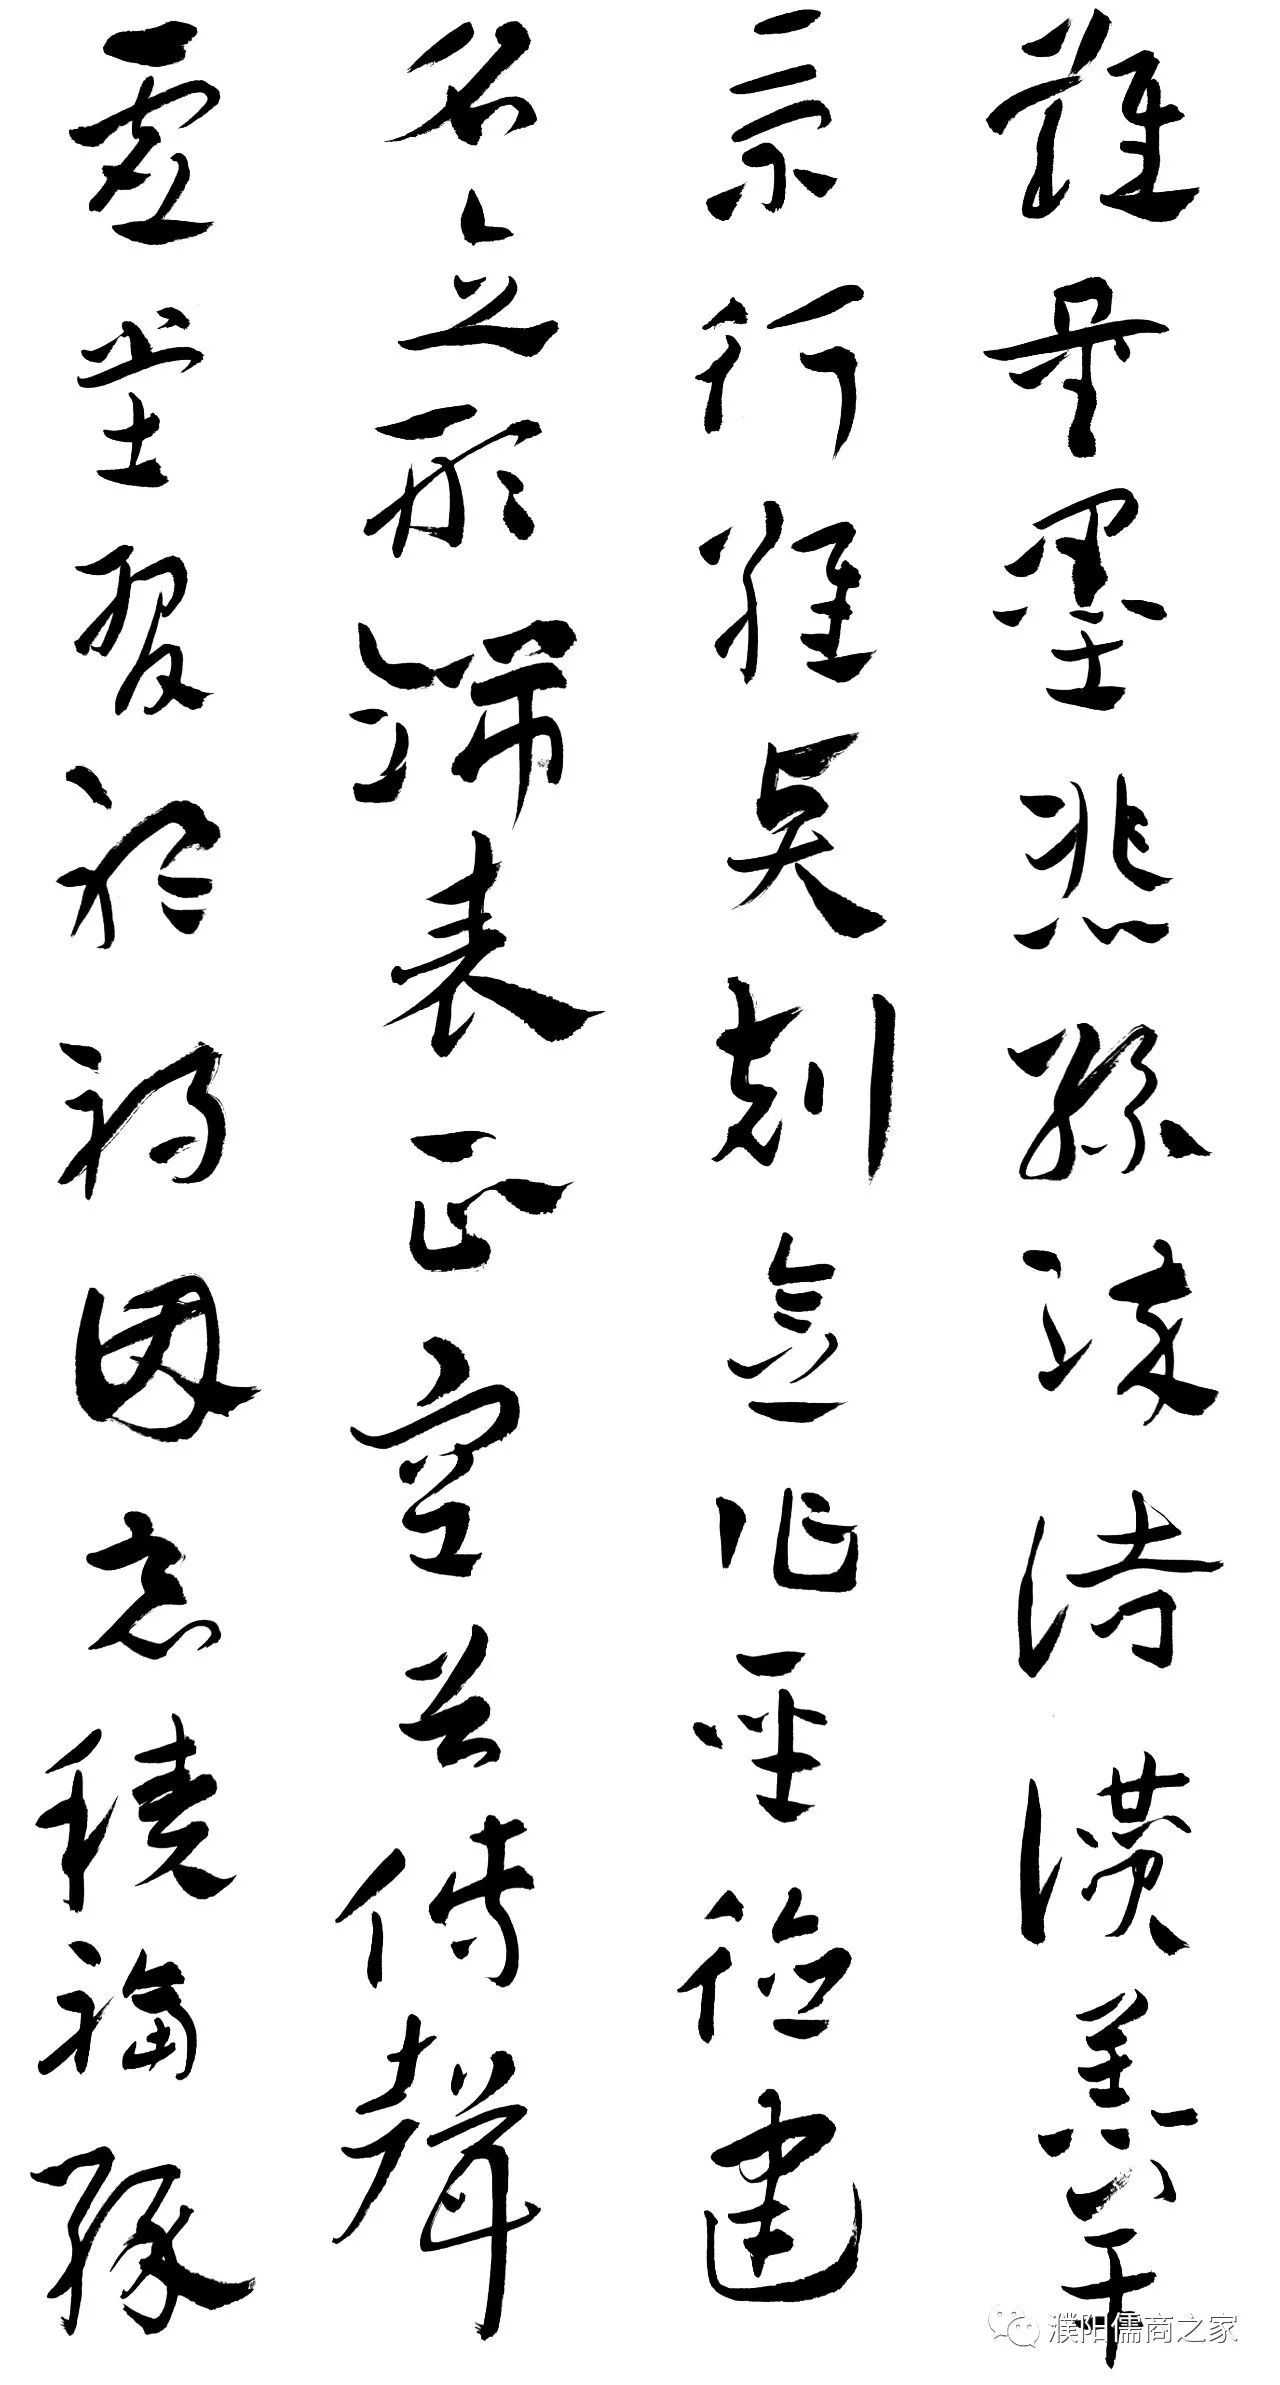 難量墨悲絲染詩讚羔羊
景行維賢剋念作聖德建
名立形端表正空谷傳聲
虛堂習聽禍因惡積福緣
濮阳儒商之家